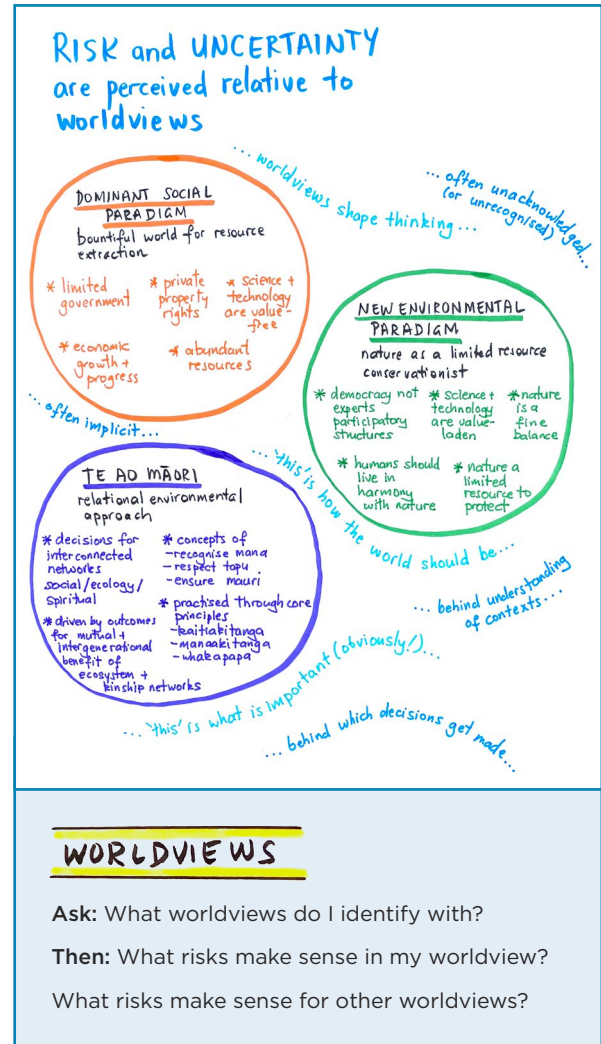 RISK and UNCERTAINTY
are perceived relative to
worldviews
... worldviews shape thinking...
... often unacknowledged...
(or unrecognised)
DOMINANT SOCIAL
PARADIGM
bountiful world for resource
extraction
* limited
government
* private
property
rights
* science +
technology
are value-
free
* economic
growth +
progress
* abundant
resources
NEW ENVIRONMENTAL
PARADIGM
nature as a limited resource
conservationist
* democracy not
experts
participatory
structures
* science +
technology
are value-
laden
* nature
is a
fine
balance
* humans should
live in
harmony
with nature
* nature a
limited
resource to
protect
... often implicit...
... 'this' is how the world should be...
TE AO MĀORI
relational environmental
approach
* decisions for
interconnected
networks
social/ecology/
spiritual
* driven by outcomes
for mutual +
intergenerational
benefit of
ecosystem +
kinship networks
* concepts of
- recognise mana
- respect tapu
- ensure mauri
* practised through core
principles
- kaitiakitanga
- manaakitanga
- whakapapa
... behind understanding
of contexts...
... 'this' is what is important (obviously!)...
... behind which decisions get made...
WORLDVIEWS
Ask: What worldviews do I identify with?
Then: What risks make sense in my worldview?
What risks make sense for other worldviews?